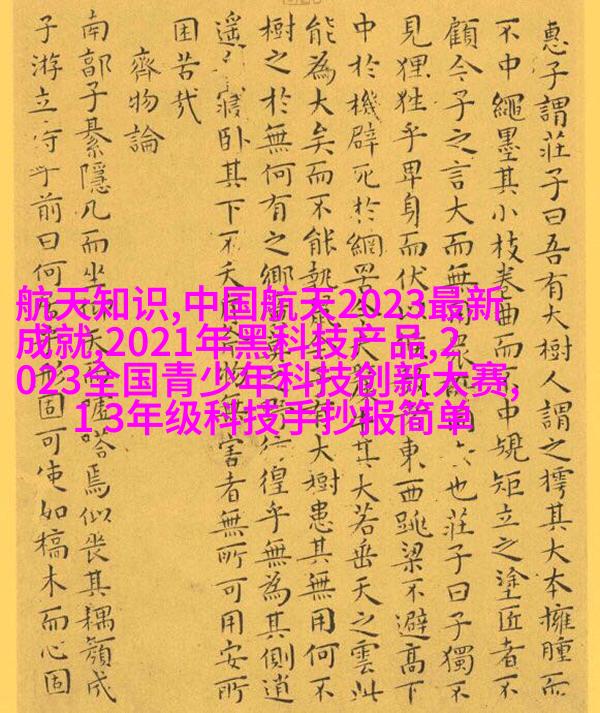 惠子謂莊子曰吾有大樹人謂之樗其大本擁腫而
不中繩墨其小枝卷曲而不中規矩立之塗匠者不
顧今子之言大而無也莊子曰子獨不
見狸狌乎卑身而伏東西跳梁不避高下
中於機辟死於網罟其大若垂天之雲此
能為大矣而不能執有大樹患其無用何不
樹之於無何有之鄉彷徨乎無為其側逍
遙寢臥其下不夭無害者無所可用安所
困苦哉
齊物論
南郭子綦隱几而坐噓嗒焉似喪其耦顏成
子游立侍乎前曰何形固可使如槁木而心固
航天知识,中国航天2023最新
成就,2021年黑科技产品,2
023全国青少年科技创新大赛,
1.3年级科技手抄报简单